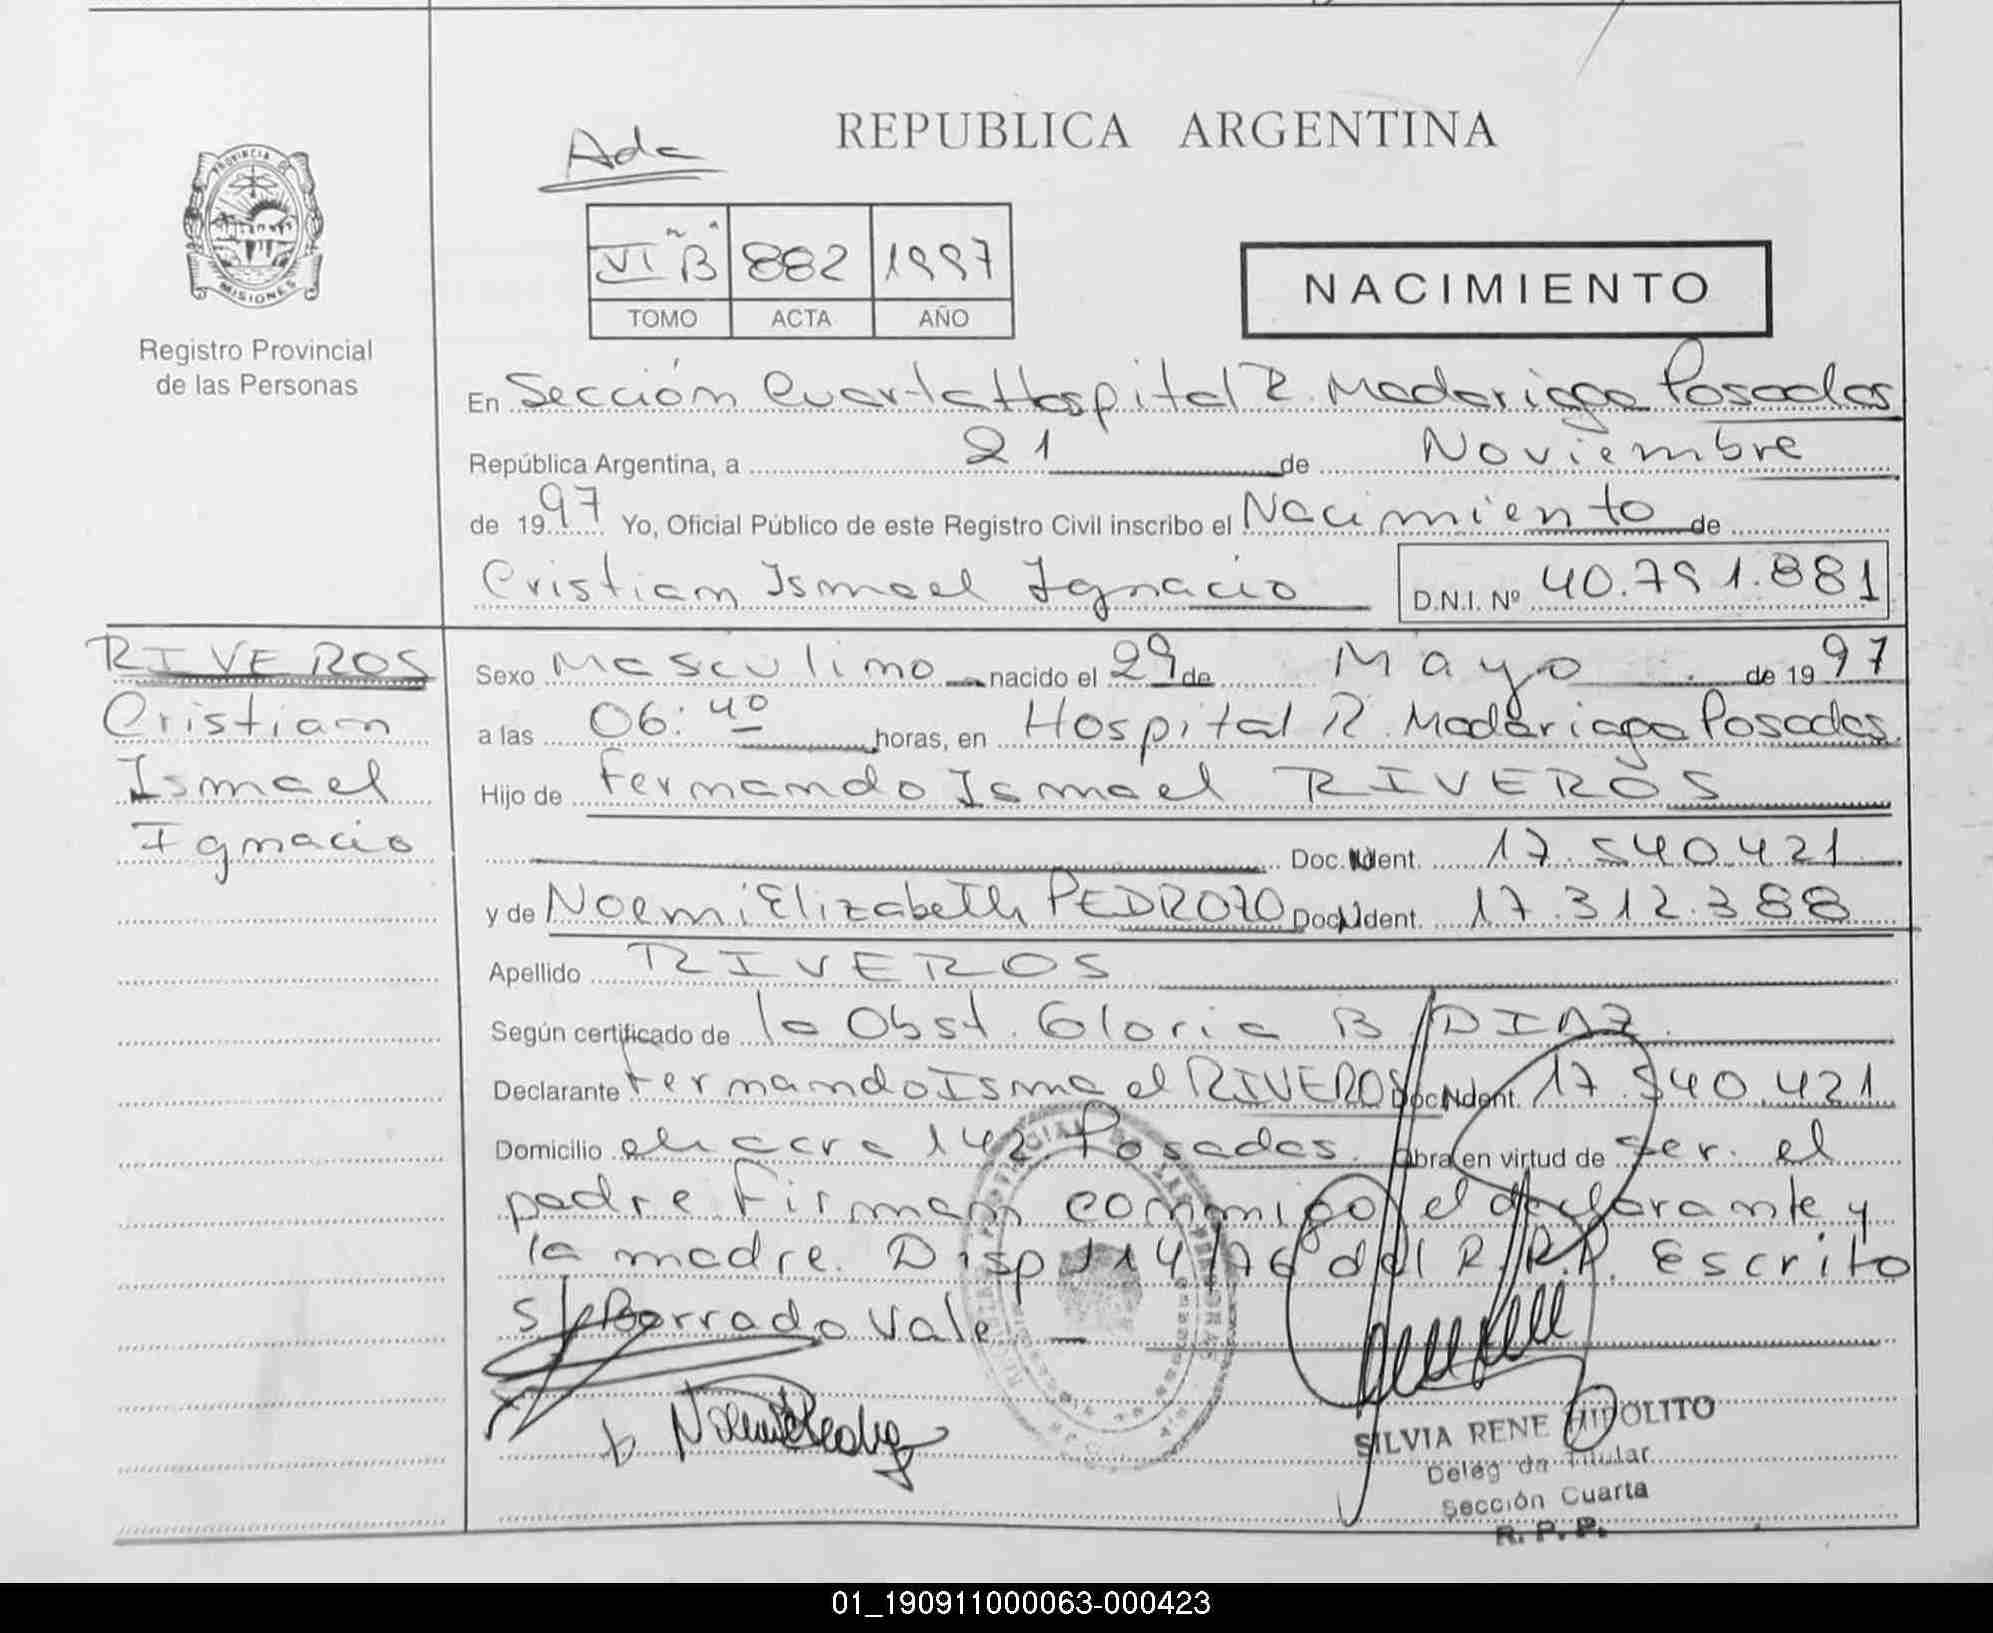 REPUBLICA ARGENTINA
Ada
VI B 882 1997
TOMO ACTA AÑO
NACIMIENTO
PROVINCIA DE
MISIONES
Registro Provincial
de las Personas
En Sección Cuarta Hospital R. Madariaga Posadas
República Argentina, a 21 de Noviembre
de 1997 Yo, Oficial Público de este Registro Civil inscribo el Nacimiento de
Cristian Ismael Ignacio D.N.I. Nº 40.791.881
RIVEROS
Cristian
Ismael
Ignacio
Sexo Masculino nacido el 29 de Mayo de 1997
a las 06:40 horas, en Hospital R. Madariaga Posadas
Hijo de Fernando Ismael RIVEROS
Doc. Ident. 17.540.421
y de Noemi Elizabeth PEDROZO Doc. Ident. 17.312.388
Apellido RIVEROS
Según certificado de la Obst. Gloria B. DIAZ
Declarante Fernando Ismael RIVEROS Doc. Ident. 17.540.421
Domicilio chacra 142 Posadas. Obra en virtud de ser el
padre Firman conmigo el declarante y
la madre. Disp 114/76 del R.R.P. Escrito
s/Borrado Vale
SILVIA RENE HIPOLITO
Delegada Titular
Sección Cuarta
R. P. P.
01_190911000063-000423